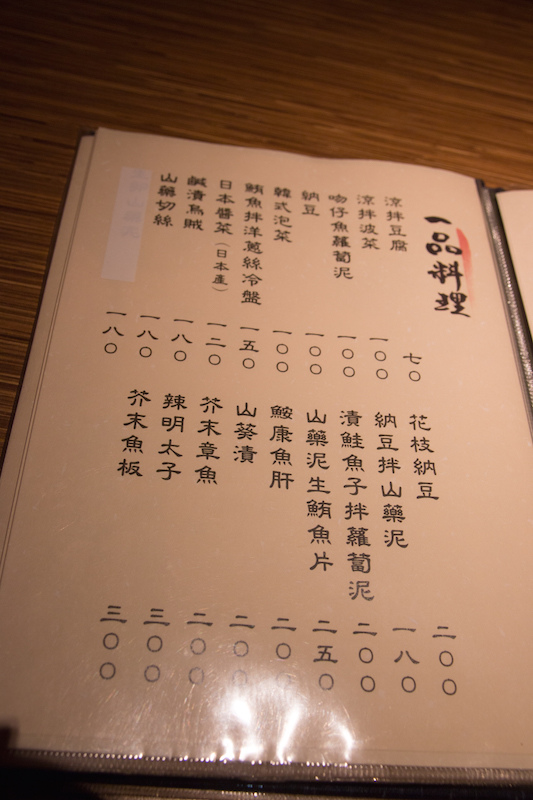 一品料理
涼拌豆腐
七〇
涼拌波菜
一〇〇
吻仔魚蘿蔔泥
一〇〇
納豆
一〇〇
韓式泡菜
一〇〇
鮪魚拌洋蔥絲冷盤
一五〇
日本醬菜（日本產）
一二〇
鹹漬烏賊
一八〇
山藥切絲
一八〇
一八〇
花枝納豆
二〇〇
納豆拌山藥泥
一八〇
漬鮭魚子拌蘿蔔泥
二〇〇
山藥泥生鮪魚片
二五〇
鮟康魚肝
二〇〇
山葵漬
二〇〇
芥末章魚
二〇〇
辣明太子
三〇〇
芥末魚板
三〇〇